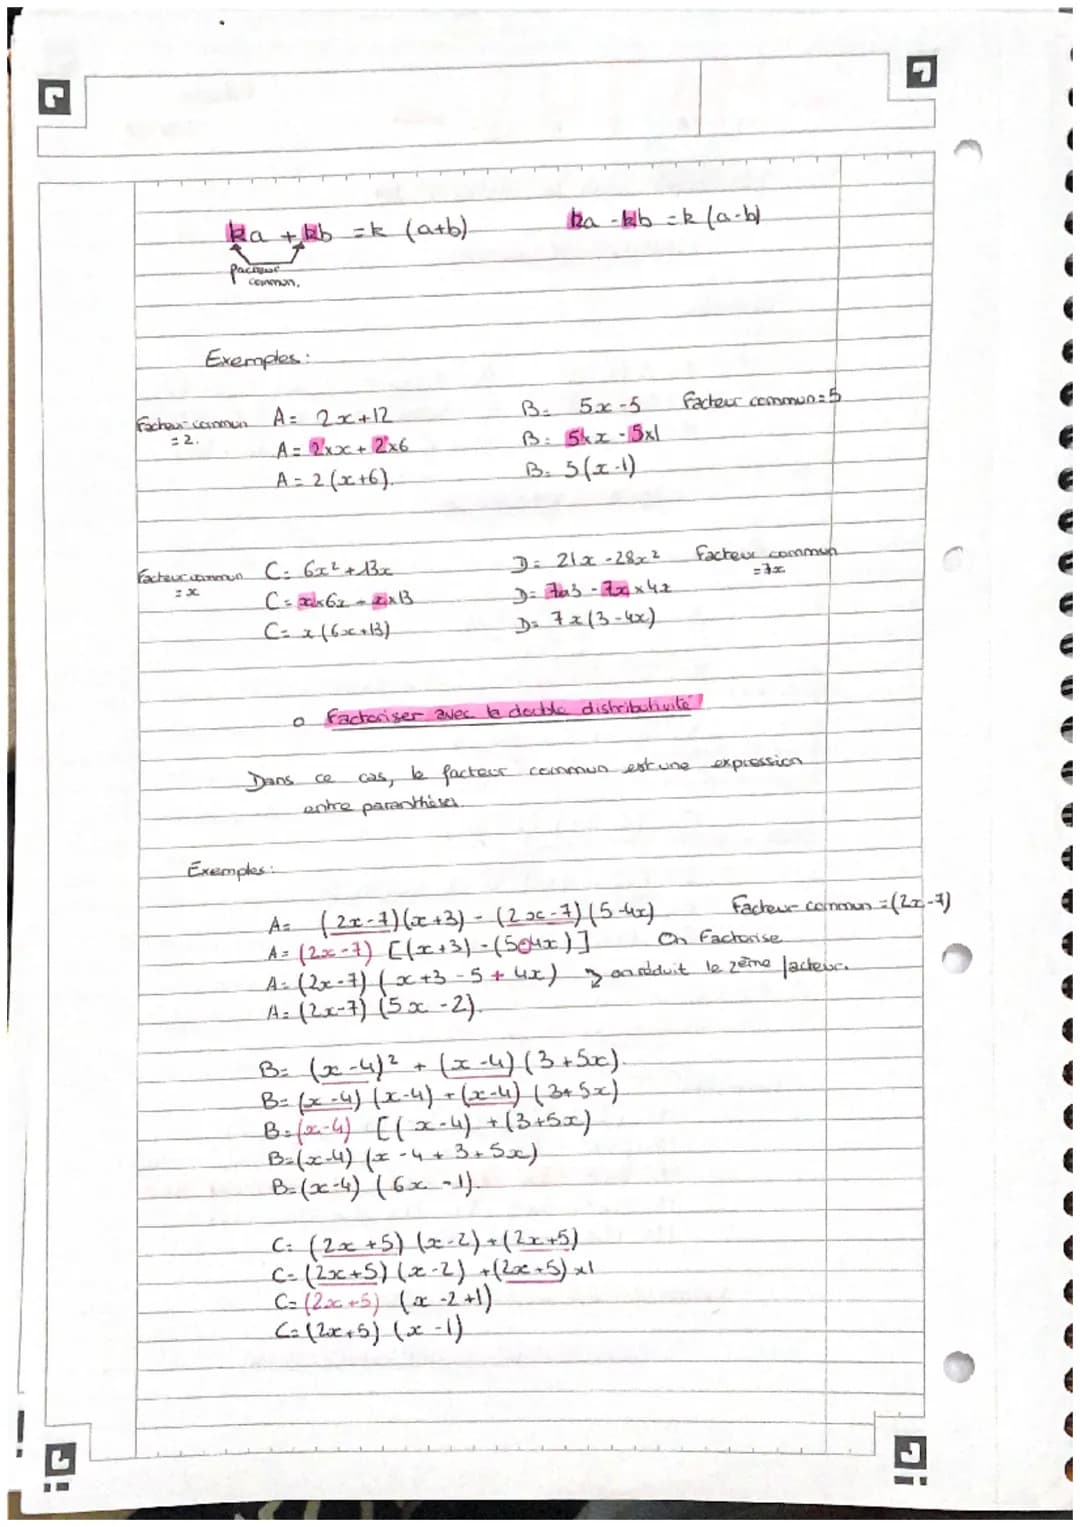 ka + kb = k (a+b)
ka - kb = k (a-b)
Facteur
commun.
Exemples :
Facteur commun
= 2.
A = 2x+12
A = 2×x + 2×6
A = 2(x+6).
B = 5x-5
Facteur commun = 5
B = 5×x - 5×1
B = 5(x-1)
Facteur commun
= x
C = 6x² + 13x
C = x×6x + x×13
C = x(6x+13)
D = 21x - 28x²
Facteur commun
= 7x
D = 7x3 - 7x × 4x
D = 7x(3-4x)
o Factoriser avec la double distributivité
Dans ce cas, le facteur commun est une expression
entre paranthèses.
Exemples :
A = (2x-7)(x+3) - (2x-7)(5-4x)
Facteur commun = (2x-7)
A = (2x-7) [(x+3) - (5-4x)]
On Factorise
A = (2x-7) (x+3 - 5 + 4x)
on réduit le 2ème facteur.
A = (2x-7) (5x - 2).
B = (x-4)² + (x-4) (3+5x)
B = (x-4) (x-4) + (x-4) (3+5x)
B = (x-4) [(x-4) + (3+5x)
B = (x-4) (x - 4 + 3 + 5x)
B = (x-4) (6x - 1).
C = (2x+5) (x-2) + (2x+5)
C = (2x+5) (x-2) + (2x+5) ×1
C = (2x+5) (x - 2 + 1)
C = (2x+5) (x - 1)